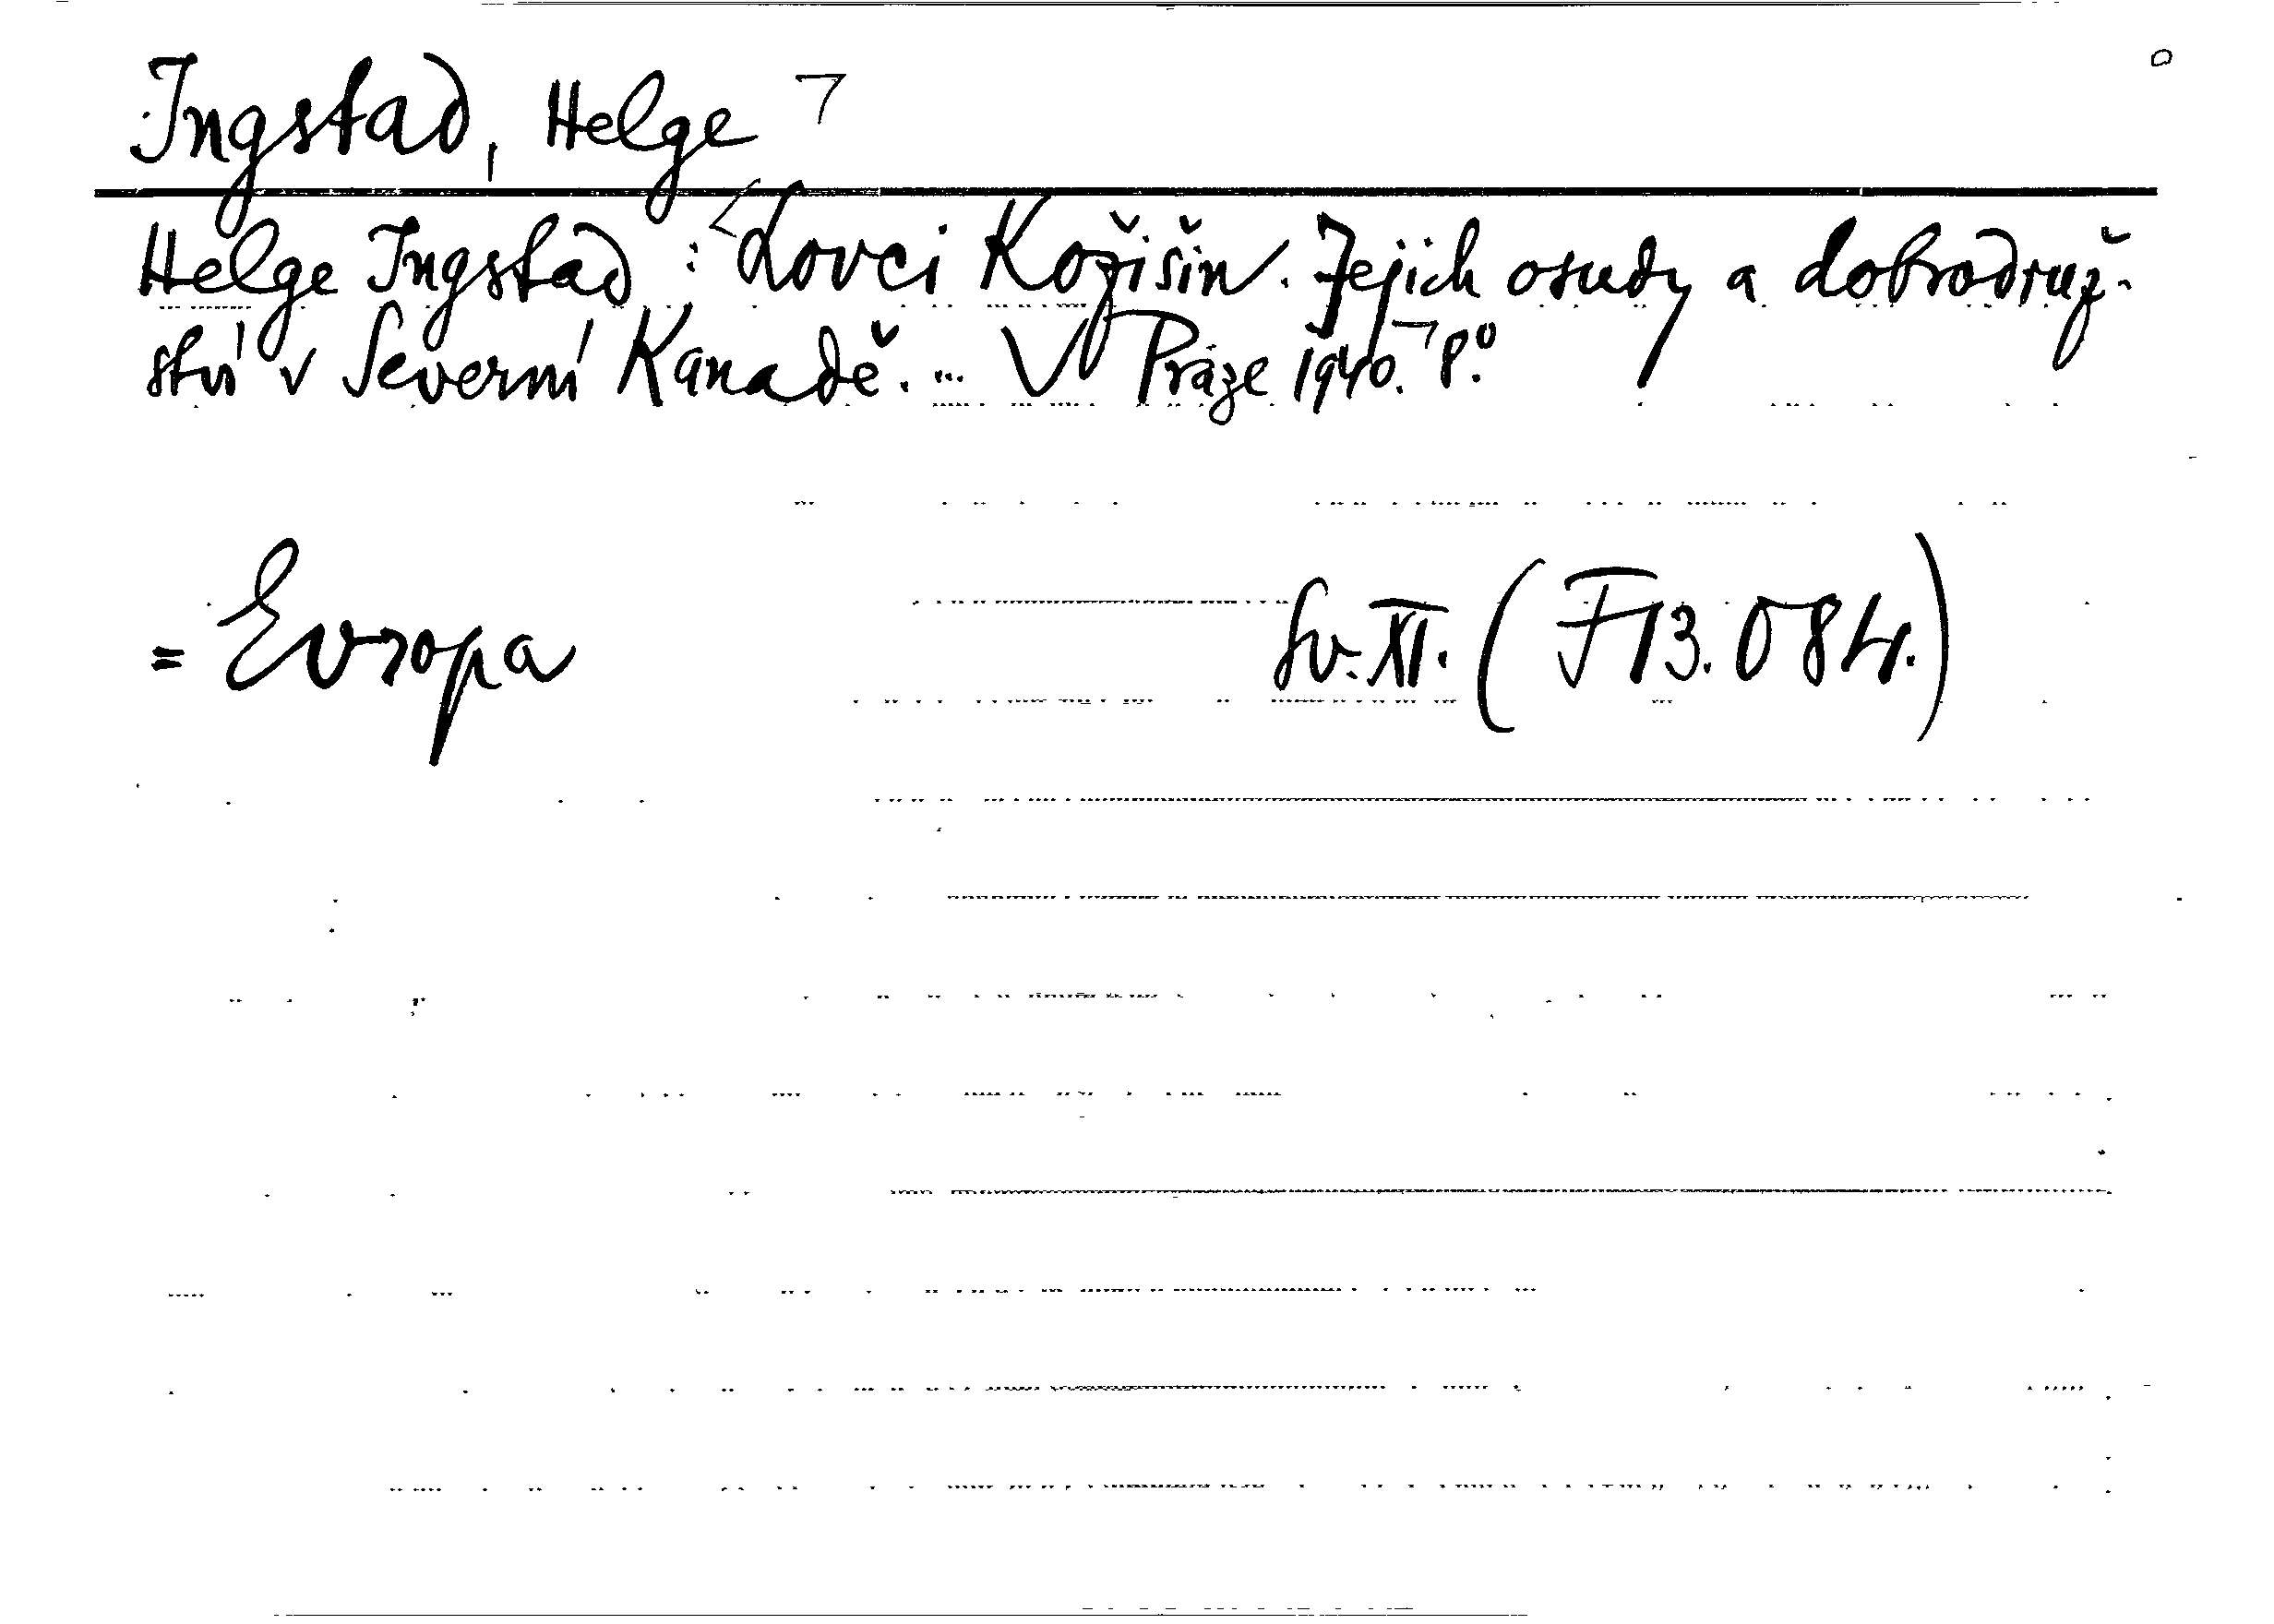 Ingstad, Helge ¬
Helge Ingstad : <Lovci Kožišin. Jejich osudy a dobrodruž-
ství v Severní Kanadě. ... V Praze 1940.¬ 8.º
= Evropa Sv. XI. (F 13.084.)